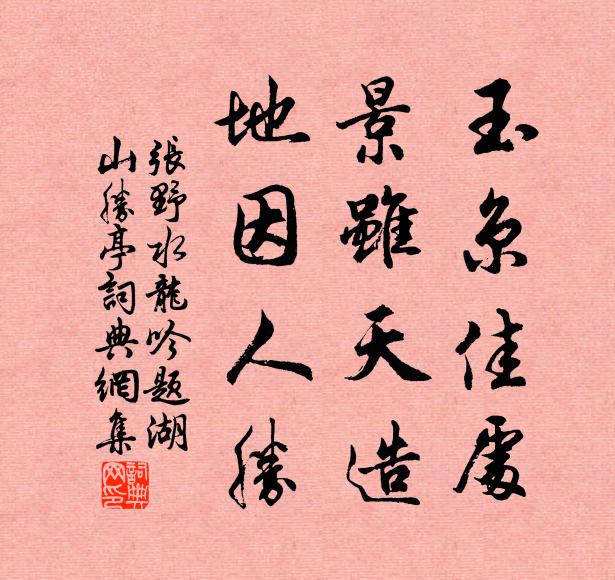 玉京佳處
景雖天造
地因人勝
張野水龍吟題湖
山勝亭詞典網集
詞典網印